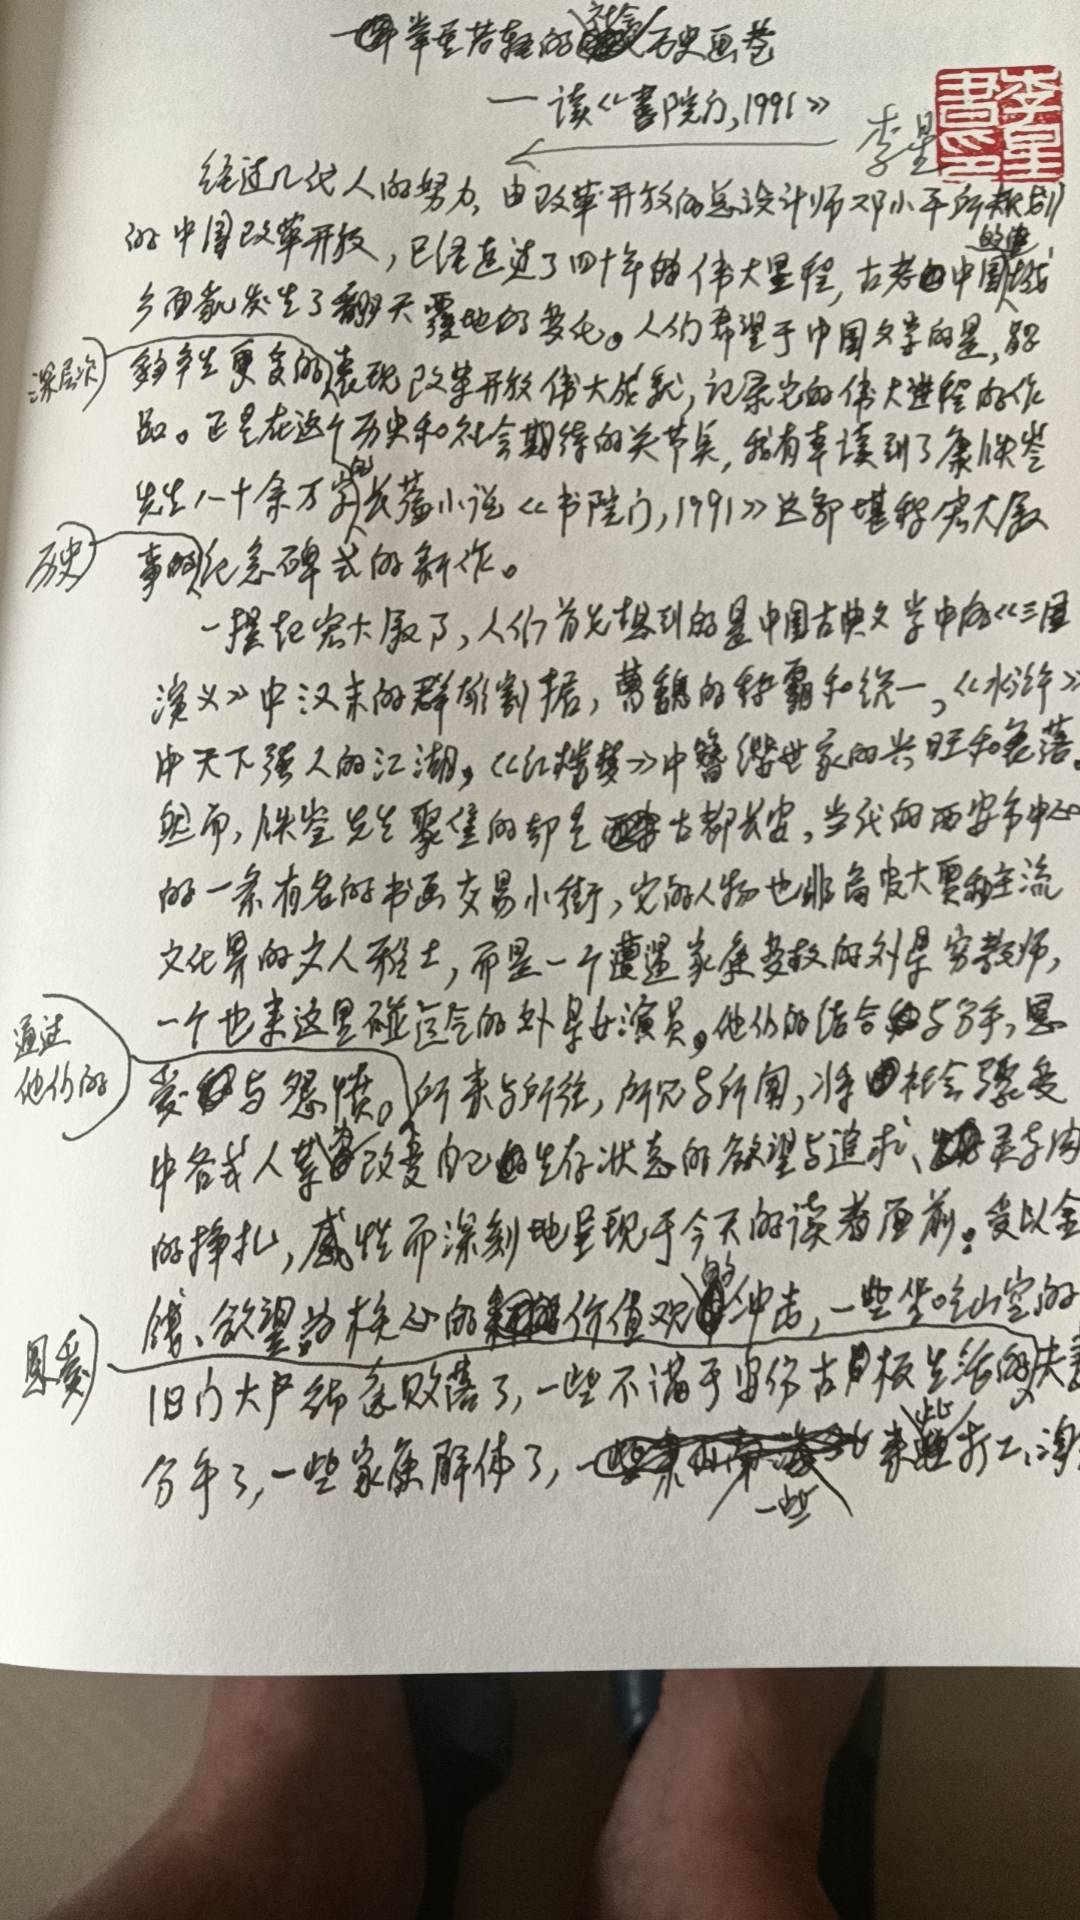 举重若轻的社会历史画卷
——读《书院门,1991》
李星
李星書印
经过几代人的努力,由改革开放的总设计师邓小平所规划
的中国改革开放,已经走过了四十年的伟大里程,古老的中国的城
乡面貌发生了翻天覆地的变化。人们希望于中国文学的是,能
够产生更多的深层次表现改革开放伟大成就,记录它的伟大进程的作
品。正是在这个历史和社会期待的关节点,我有幸读到了康铁岭
先生八十余万字的长篇小说《书院门,1991》这部堪称宏大叙
事的历史纪念碑式的新作。
一提起宏大叙事,人们首先想到的是中国古典文学中的《三国
演义》中汉末的群雄割据,曹魏的称霸和统一,《水浒》
中天下强人的江湖,《红楼梦》中簪缨世家的兴旺和衰落。
然而,铁岭先生聚焦的却是古都长安,当代的西安市中心
的一条有名的书画交易小街,它的人物也非高官大贾和主流
文化界的文人雅士,而是一个遭遇家庭变故的外县穷教师,
一个也来这里碰运气的外县女演员。他们的结合与分手,恩
爱与怨愤。通过他们的所来与所往,所见与所闻,将社会裂变
中各式人等改变自己生存状态的欲望与追求、灵与肉
的挣扎,感性而深刻地呈现于今天的读者面前。受以金
钱、欲望为核心的价值观的冲击,一些坐吃山空的
旧门大户衰败落了,一些不满于安份古板生活的恩爱夫妻
分手了,一些家庭解体了,一些来此打工、淘